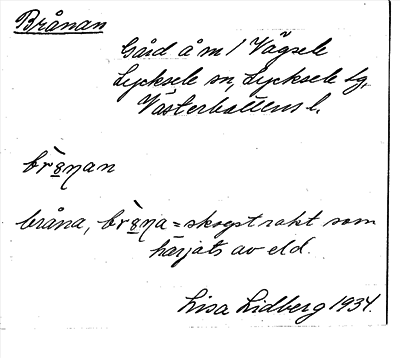 Brånan
Gård å m / Vägsele
Lycksele sn, Lycksele lg,
Västerbottens l.
brånan
bråna, = skogstrakt som
härjats av eld.
Lisa Lidberg 1934.